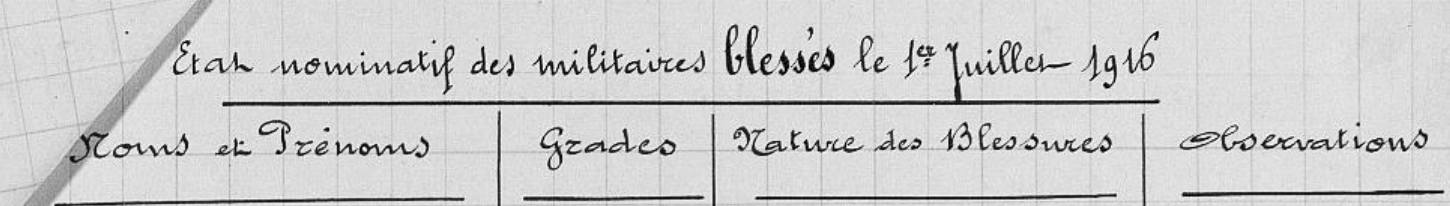 Etat nominatif des militaires blessés le 1er Juillet 1916
Noms et Prénoms Grades Nature des Blessures Observations